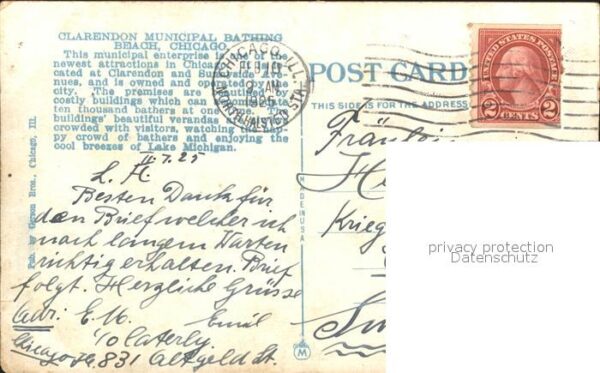 CLARENDON MUNICIPAL BATHING
BEACH, CHICAGO.
This municipal enterprise is one of the
newest attractions in Chicago. It is lo-
cated at Clarendon and Sunnyside Ave-
nues, and is owned and operated by the
city. The premises are beautified by
costly buildings which can accommodate
ten thousand bathers at one time. The
buildings' beautiful verandas are always
crowded with visitors, watching the hap-
py crowd of bathers and enjoying the
cool breezes of Lake Michigan.
CHICAGO, ILL.
FEB 10
9 AM
1925
NORTH HALSTED ST.
POST CARD
THIS SIDE IS FOR THE ADDRESS
UNITED STATES POSTAGE
2 CENTS 2
Pub. by Gerson Bros., Chicago, Ill.
MADE IN USA
M
II. 7. 25
L. H.
Besten Dank für
den Brief welcher ich
nach langem Warten
richtig erhalten. Brief
folgt. Herzliche Grüsse
Emil
adr: E. H.
831 Altgeld St.
Chicago Ill.
Fräulein
He
Krieg
privacy protection
Datenschutz